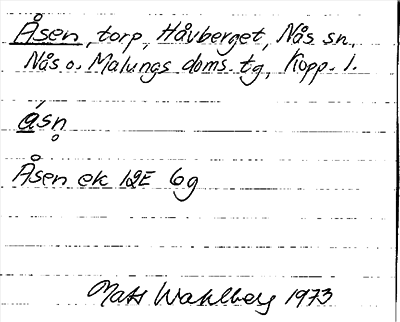 Åsen, torp, Håvberget, Nås sn.
Nås o. Malungs doms. tg, Kopp. l.
åsn̥
Åsen ek 12E 6g
Mats Wahlberg 1973